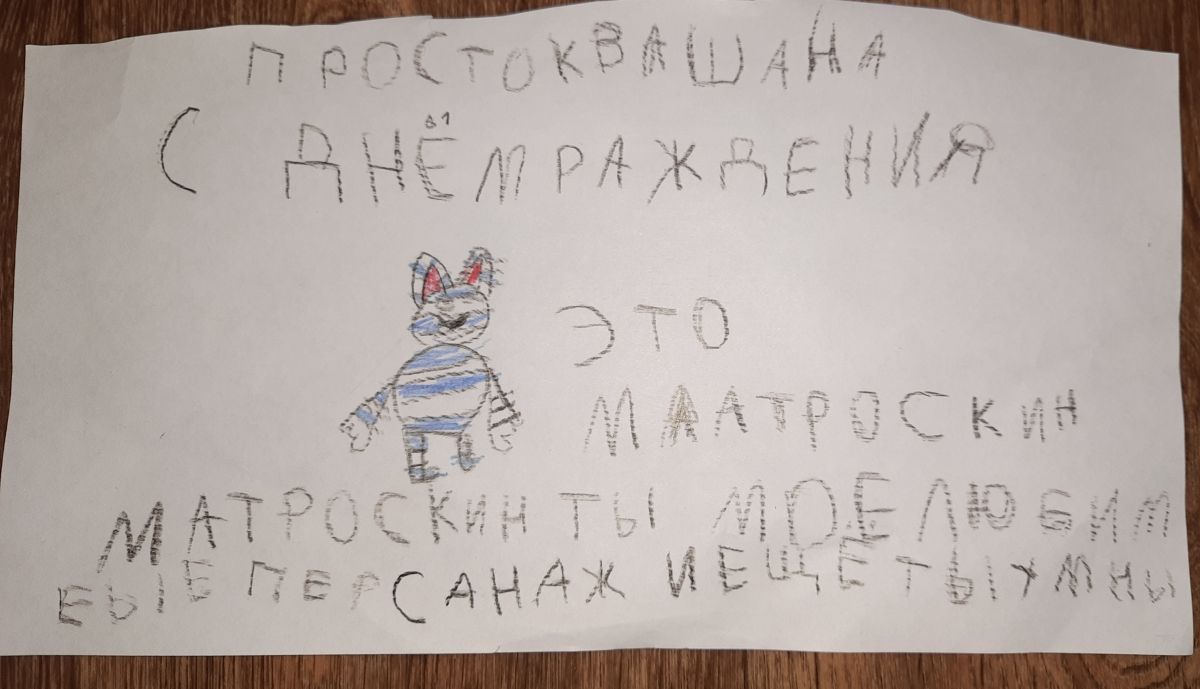 ПРОСТОКВАШАНА
С ДНЁМ РАЖДЕНИЯ
ЭТО
МААТРОСКИН
МАТРОСКИН ТЫ МОЕ ЛЮБИМ
ЕЫЕ ПЕРСАНАЖ ИЕЩЕ ТЫ УМНЫ